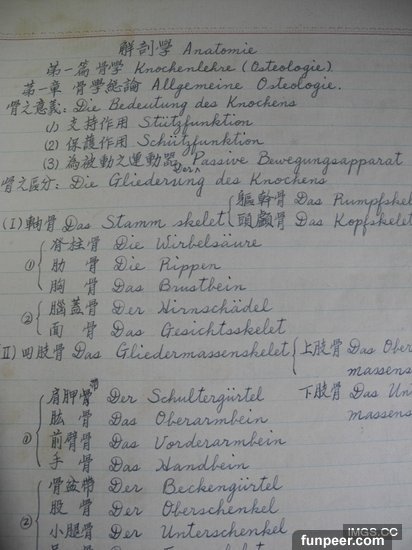 解剖學 Anatomie
第一篇 骨學 Knochenlehre (Osteologie)
第一章 骨學總論 Allgemeine Osteologie.
骨之意義: Die Bedeutung des Knochens
(1) 支持作用 Stützfunktion
(2) 保護作用 Schützfunktion
(3) 為被動之運動器 Der Passive Bewegungsapparat
骨之區分: Die Gliederung des Knochens
(I) 軸骨 Das Stamm skelet { 軀幹骨 Das Rumpfskel
頭顱骨 Das Kopfskelet
① { 脊柱骨 Die Wirbelsäure
肋 骨 Die Rippen
胸 骨 Das Brustbein
② { 腦蓋骨 Der Hirnschädel
面 骨 Das Gesichtsskelet
II) 四肢骨 Das Gliedermassenskelet { 上肢骨 Das Ober
massens
下肢骨 Das Un
massens
① { 肩胛骨 Der Schultergürtel
肱 骨 Das Oberarmbein
前臂骨 Das Vorderarmbein
手 骨 Das Handbein
② { 骨盆帶 Der Beckengürtel
股 骨 Der Oberschenkel
小腿骨 Der Unterschenkel
IMGS.CC
funpeer.com